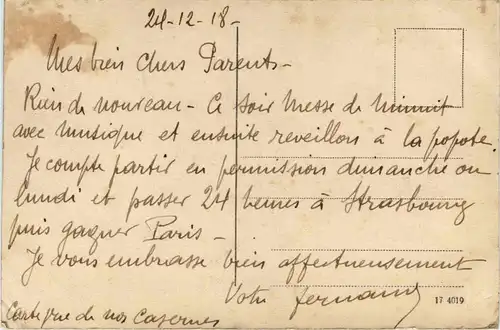 24-12-18-
Mes bien chers Parents-
Rien de nouveau - Ce soir Messe de Minuit
avec Musique et ensuite reveillon à la popote.
Je compte partir en permission dimanche ou
lundi et passer 24 heures à Strasbourg
puis gagner Paris -
Je vous embrasse bien affectueusement
Votre fernand
17 4019
Carte prise de nos casernes